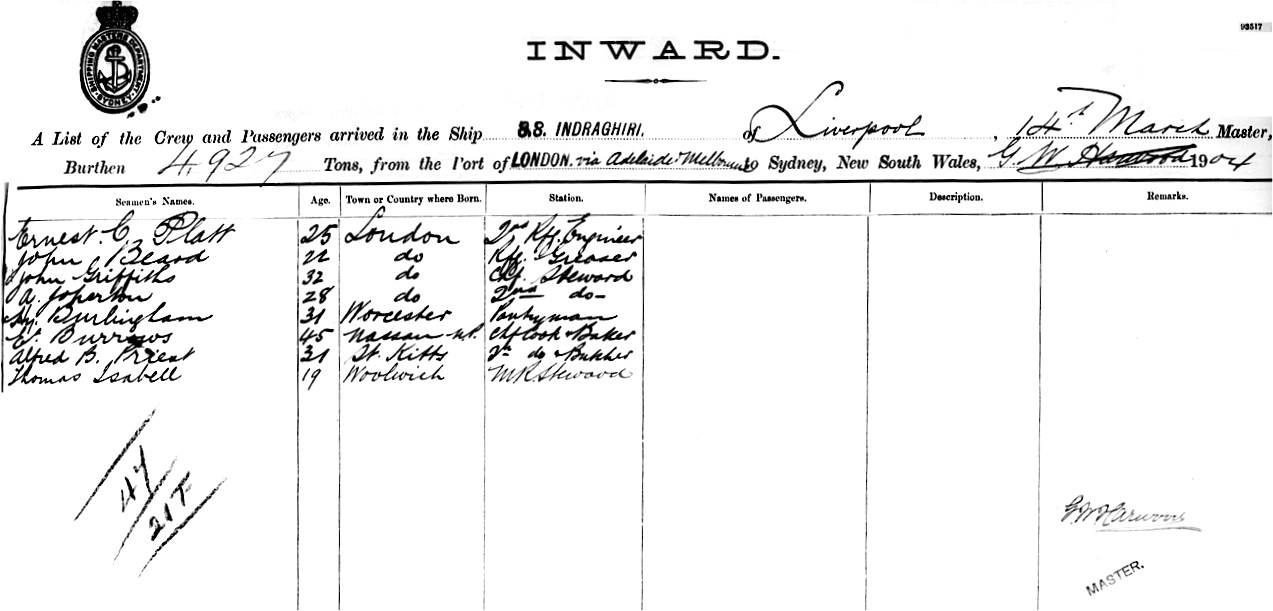 93517
SHIPPING MASTERS DEPARTMENT SYDNEY
INWARD.
A List of the Crew and Passengers arrived in the Ship S.S. INDRAGHIRI. of Liverpool, 14th March Master,
Burthen 4,927 Tons, from the Port of LONDON. via Adelaide & Melbourne to Sydney, New South Wales, G. W. Harwood 1904
Seamen's Names. Age. Town or Country where Born. Station. Names of Passengers. Description. Remarks.
Ernest. C. Platt 25 London 2nd Rfg. Engineer
John Beard 22 do Rfg. Greaser
John Griffiths 32 do Chf. Steward
A. 28 do 2nd do-
Hy. Burlingham 31 Worcester Pantryman
E. Burrows 45 Nassau N.P. Chf Cook & Baker
Alfred B. Priest 31 St. Kitts 2n do & Butcher
Thomas Isabell 19 Woolwich M.R. Steward
47
20 T
G W Harwood
MASTER.